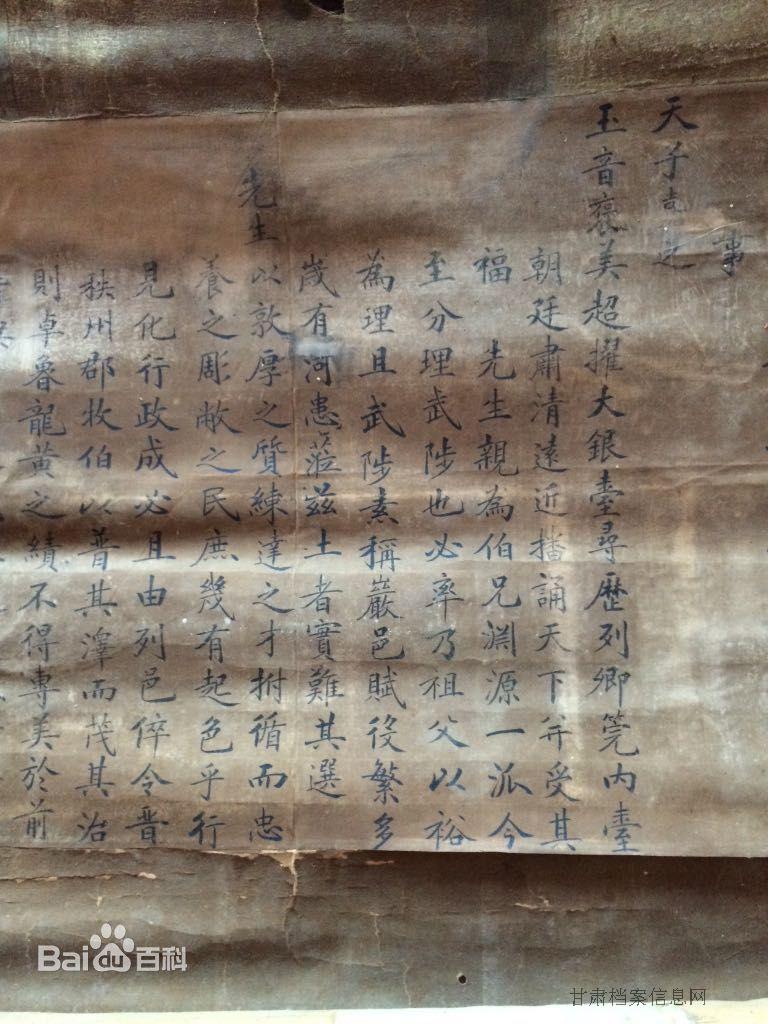 事
天子
玉音褒美超擢大銀臺尋歷列卿筦内臺
朝廷肅清遠近播誦天下并受其
福 先生親為伯兄淵源一派今
至分理武陟也必率乃祖父以裕
為理且武陟素稱巖邑賦役繁多
歲有河患蒞兹土者實難其選
先生以敦厚之質練達之才拊循而忠
養之彫敝之民庶幾有起色乎行
見化行政成必且由列邑倅令晋
秩州郡牧伯以普其澤而茂其治
則卓魯龍黄之績不得專美於前
Bai du 百科
甘肃档案信息网